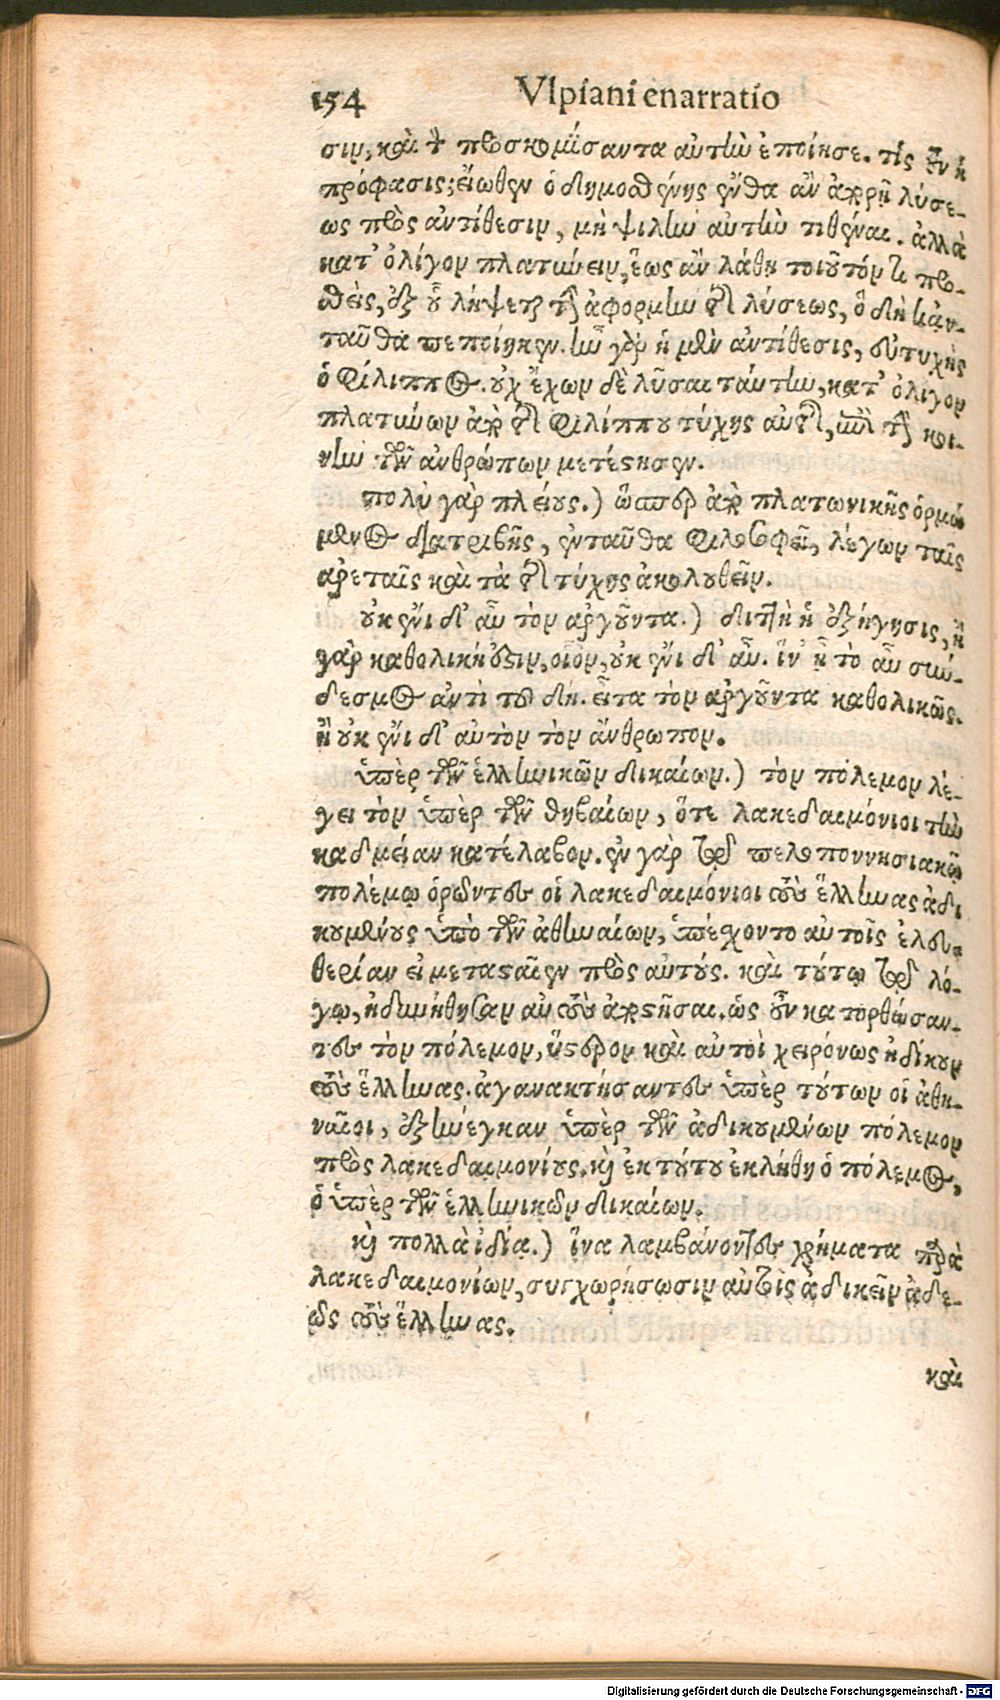 154 Vlpiani enarratio
σιν, καὶ τὸν προσκομίσαντα αὐτὴν ἐποίησε. τίς οὖν ἡ
πρόφασις; εἴωθεν ὁ δημοσθένης ἔνθα ἂν ἀπορῇ λύσε-
ως πρὸς ἀντίθεσιν, μὴ ψιλὴν αὐτὴν τιθέναι. ἀλλὰ
κατ' ὀλίγον πλατύνειν, ἕως ἂν λάθῃ τοιοῦτόν τι προ-
θεὶς, ἐξ οὗ λήψεται τὴν ἀφορμὴν τῆς λύσεως, ὃ δὴ κἀν-
ταῦθα πεποίηκεν. ἦν γὰρ ἡ μὲν ἀντίθεσις, εὐτυχὴς
ὁ Φίλιππος. οὐχ ἔχων δὲ λῦσαι ταύτην, κατ' ὀλίγον
πλατύνων ἀπὸ τῆς Φιλίππου τύχης αὐτῆς, ἐπὶ τὴν κοι-
νὴν τῶν ἀνθρώπων μετέστησεν.
πολὺ γὰρ πλείους.) ὥσπερ ἀπὸ πλατωνικῆς ὁρμώ
μενος διατριβῆς, ἐνταῦθα φιλοσοφεῖ, λέγων ταῖς
ἀρεταῖς καὶ τὰ τῆς τύχης ἀκολουθεῖν.
οὐκ ἔνι δ' αὖ τὸν ἀργοῦντα.) διττὴ ἡ ἐξήγησις, ἢ
γὰρ καθολική ἐστιν, οἷον, οὐκ ἔνι δ' αὖ. ἵν' ᾖ τὸ αὖ σύν-
δεσμος ἀντὶ τοῦ δή. εἶτα τὸν ἀργοῦντα καθολικῶς.
ἢ οὐκ ἔνι δ' αὐτὸν τὸν ἄνθρωπον.
ὑπὲρ τῶν ἑλληνικῶν δικαίων.) τὸν πόλεμον λέ-
γει τὸν ὑπὲρ τῶν θηβαίων, ὅτε λακεδαιμόνιοι τὴν
καδμείαν κατέλαβον. ἐν γὰρ τῷ πελοποννησιακῷ
πολέμῳ ὁρῶντες οἱ λακεδαιμόνιοι τοὺς ἕλληνας ἀδι
κουμένους ὑπὸ τῶν ἀθηναίων, ὑπέσχοντο αὐτοῖς ἐλευ-
θερίαν εἰ μετασταῖεν πρὸς αὐτούς. καὶ τούτῳ τῷ λό-
γῳ, ἠδυνήθησαν αὐτοὺς ἀποστῆσαι. ὡς οὖν κατορθώσαν-
τες τὸν πόλεμον, ὕστερον καὶ αὐτοὶ χειρόνως ἠδίκουν
τοὺς ἕλληνας. ἀγανακτήσαντες ὑπὲρ τούτων οἱ ἀθη-
ναῖοι, ἐξήνεγκαν ὑπὲρ τῶν ἀδικουμένων πόλεμον
πρὸς λακεδαιμονίους. καὶ ἐκ τούτου ἐκλήθη ὁ πόλεμος,
ὁ ὑπὲρ τῶν ἑλληνικῶν δικαίων.
καὶ πολλὰ ἰδίᾳ.) ἵνα λαμβάνοντες χρήματα παρὰ
λακεδαιμονίων, συγχωρήσωσιν αὐτοῖς ἀδικεῖν ἀδε-
ῶς τοὺς ἕλληνας.
καὶ
Digitalisierung gefördert durch die Deutsche Forschungsgemeinschaft - DFG